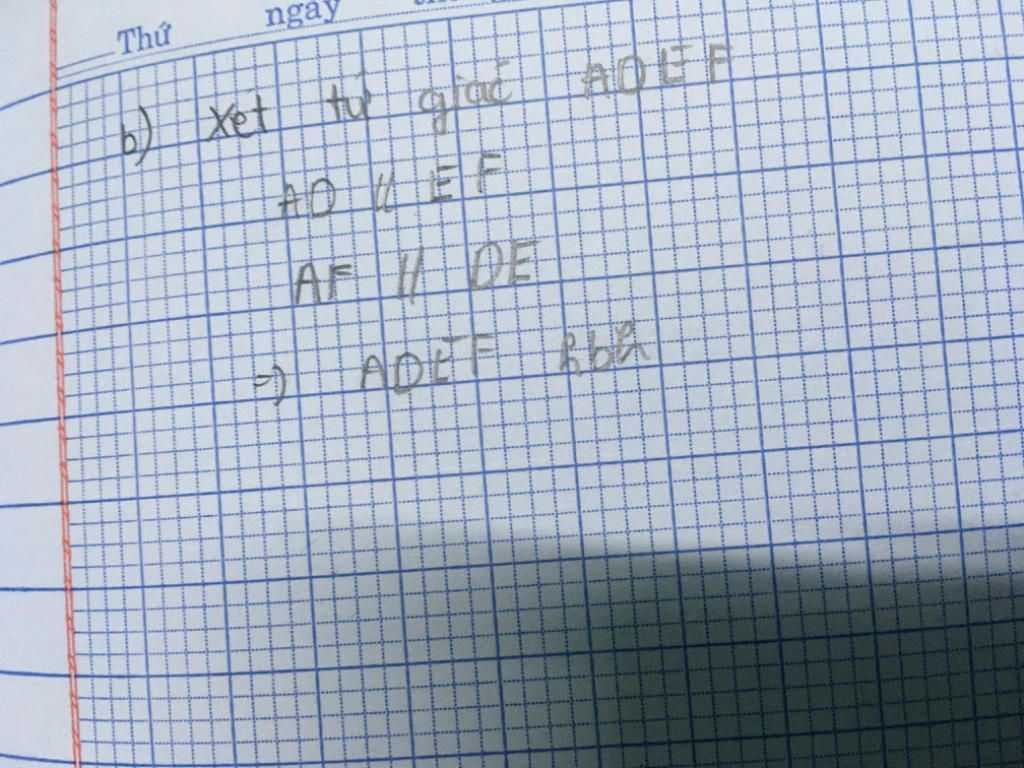 Thứ ngày
b) xét tứ giác ADEF
AD // EF
AF // DE
=) ADEF hbh